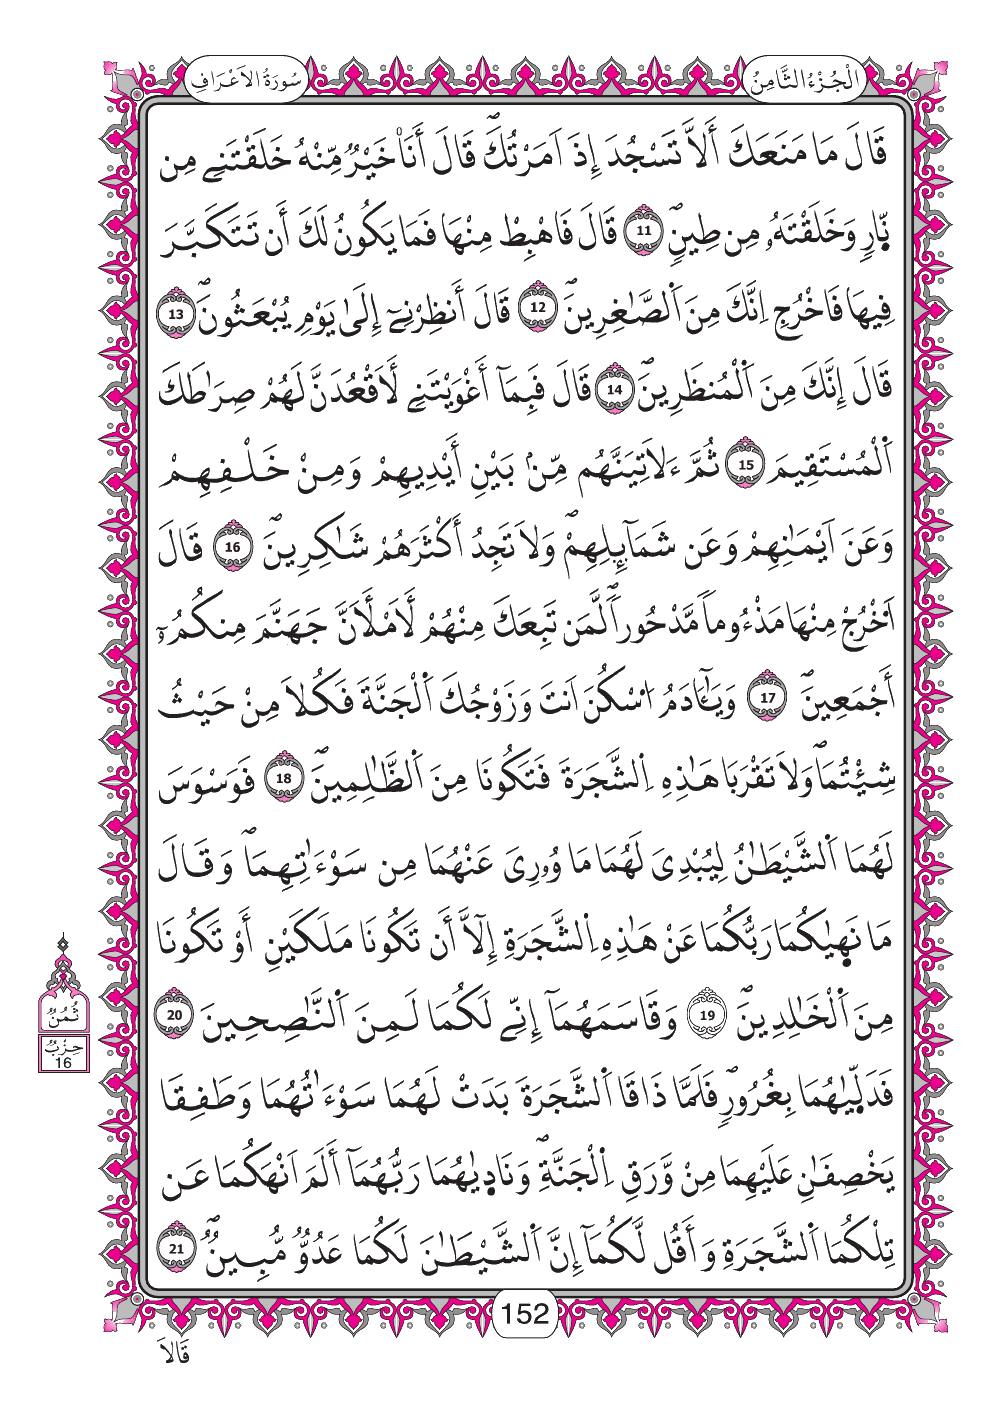 الْجُزْءُ الثَّامِنُ
سُورَةُ الَاعْرَافِ
قَالَ مَا مَنَعَكَ أَلَّا تَسْجُدَ إِذَ اَمَرْتُكَۖ قَالَ أَنَا۠ خَيْرٞ مِّنْهُ خَلَقْتَنِے مِن
نّ۪ارٖ وَخَلَقْتَهُۥ مِن طِينٖۖ 11 قَالَ فَاهْبِطْ مِنْهَا فَمَا يَكُونُ لَكَ أَن تَتَكَبَّرَ
فِيهَا فَاخْرُجِ اِنَّكَ مَنَ اَ۬لصَّٰغِرِينَۖ 12 قَالَ أَنظِرْنِےٓ إِلَىٰ يَوْمِ يُبْعَثُونَۖ 13
قَالَ إِنَّكَ مِنَ اَ۬لْمُنظَرِينَۖ 14 قَالَ فَبِمَآ أَغْوَيْتَنِے لَأَقْعُدَنَّ لَهُمْ صِرَٰطَكَ
اَ۬لْمُسْتَقِيمَ 15 ثُمَّ ءَلَاتِيَنَّهُم مِّنۢ بَيْنِ أَيْدِيهِمْ وَمِنْ خَلْفِهِمْ
وَعَنَ اَيْمَٰنِهِمْ وَعَن شَمَآئِلِهِمْۖ وَلَا تَجِدُ أَكْثَرَهُمْ شَٰكِرِينَۖ 16 قَالَ
اَ۟خْرُجْ مِنْهَا مَذْءُوماٗ مَّدْحُوراٗۖ لَّمَن تَبِعَكَ مِنْهُمْ لَأَمْلَأَنَّ جَهَنَّمَ مِنكُمُۥٓ
أَجْمَعِينَۖ 17 وَيَٰٓـَٔادَمُ اُ۟سْكُنَ اَنتَ وَزَوْجُكَ اَ۬لْجَنَّةَ فَكُلَا مِنْ حَيْثُ
شِئْتُمَاۖ وَلَا تَقْرَبَا هَٰذِهِ اِ۬لشَّجَرَةَ فَتَكُونَا مِنَ اَ۬لظَّٰلِمِينَۖ 18 فَوَسْوَسَ
لَهُمَا اَ۬لشَّيْطَٰنُ لِيُبْدِيَ لَهُمَا مَا وُۥرِيَ عَنْهُمَا مِن سَوْءَٰتِهِمَاۖ وَقَالَ
مَا نَه۪يٰكُمَا رَبُّكُمَا عَنْ هَٰذِهِ اِ۬لشَّجَرَةِ إِلَّآ أَن تَكُونَا مَلَكَيْنِ أَوْ تَكُونَا
مِنَ اَ۬لْخَٰلِدِينَۖ 19 وَقَاسَمَهُمَآ إِنِّے لَكُمَا لَمِنَ اَ۬لنَّٰصِحِينَ 20
فَدَلّ۪يٰهُمَا بِغُرُورٖۖ فَلَمَّا ذَاقَا اَ۬لشَّجَرَةَ بَدَتْ لَهُمَا سَوْءَٰتُهُمَا وَطَفِقَا
يَخْصِفَٰنِ عَلَيْهِمَا مِنْ وَّرَقِ اِ۬لْجَنَّةِۖ وَنَاد۪يٰهُمَا رَبُّهُمَآ أَلَمَ اَنْهَكُمَا عَن
تِلْكُمَا اَ۬لشَّجَرَةِ وَأَقُل لَّكُمَآ إِنَّ اَ۬لشَّيْطَٰنَ لَكُمَا عَدُوّٞ مُّبِينٞۖ 21
ثُمُنٌ
حِزْبٌ
16
152
قَالَا